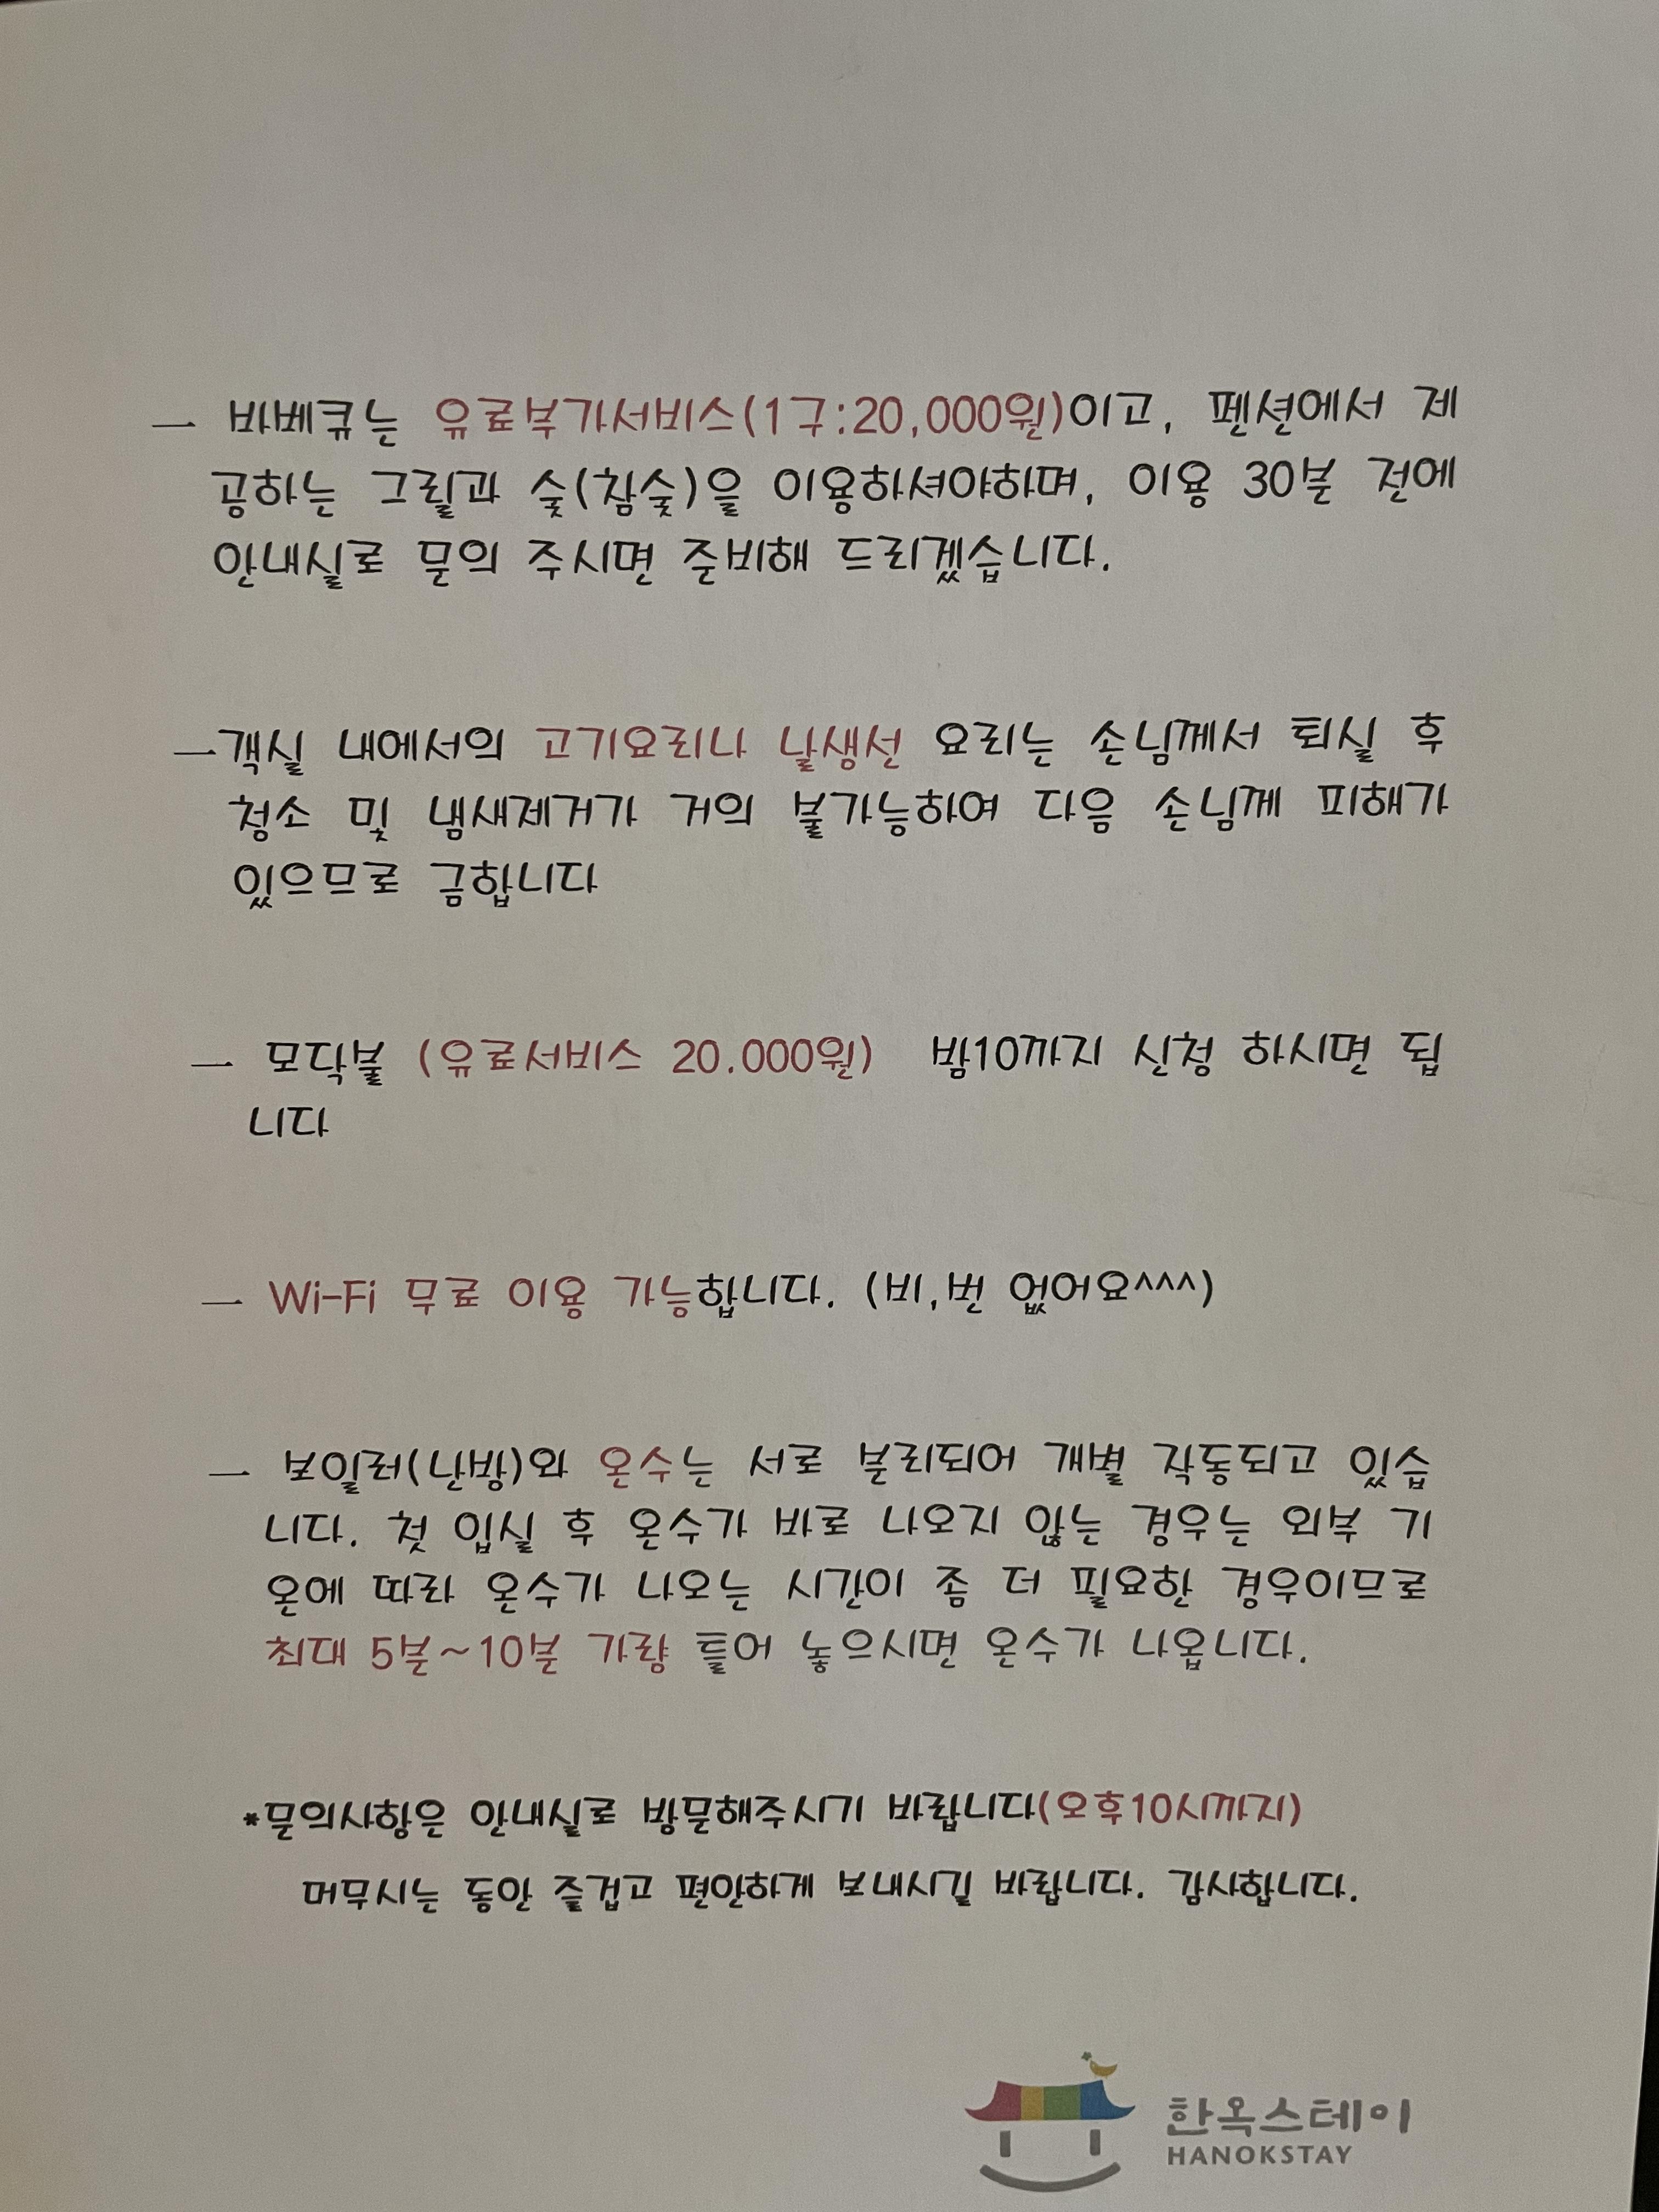 - 바베큐는 유료부가서비스(1구:20,000원)이고, 펜션에서 제
공하는 그릴과 숯(참숯)을 이용하셔야하며, 이용 30분 전에
안내실로 문의 주시면 준비해 드리겠습니다.
-객실 내에서의 고기요리나 날생선 요리는 손님께서 퇴실 후
청소 및 냄새제거가 거의 불가능하여 다음 손님께 피해가
있으므로 금합니다
- 모닥불 (유료서비스 20.000원) 밤10까지 신청 하시면 됩
니다
- Wi-Fi 무료 이용 가능합니다. (비,번 없어요^^^)
- 보일러(난방)와 온수는 서로 분리되어 개별 작동되고 있습
니다. 첫 입실 후 온수가 바로 나오지 않는 경우는 외부 기
온에 따라 온수가 나오는 시간이 좀 더 필요한 경우이므로
최대 5분~10분 가량 틀어 놓으시면 온수가 나옵니다.
*문의사항은 안내실로 방문해주시기 바랍니다(오후10시까지)
머무시는 동안 즐겁고 편안하게 보내시길 바랍니다. 감사합니다.
한옥스테이
HANOKSTAY